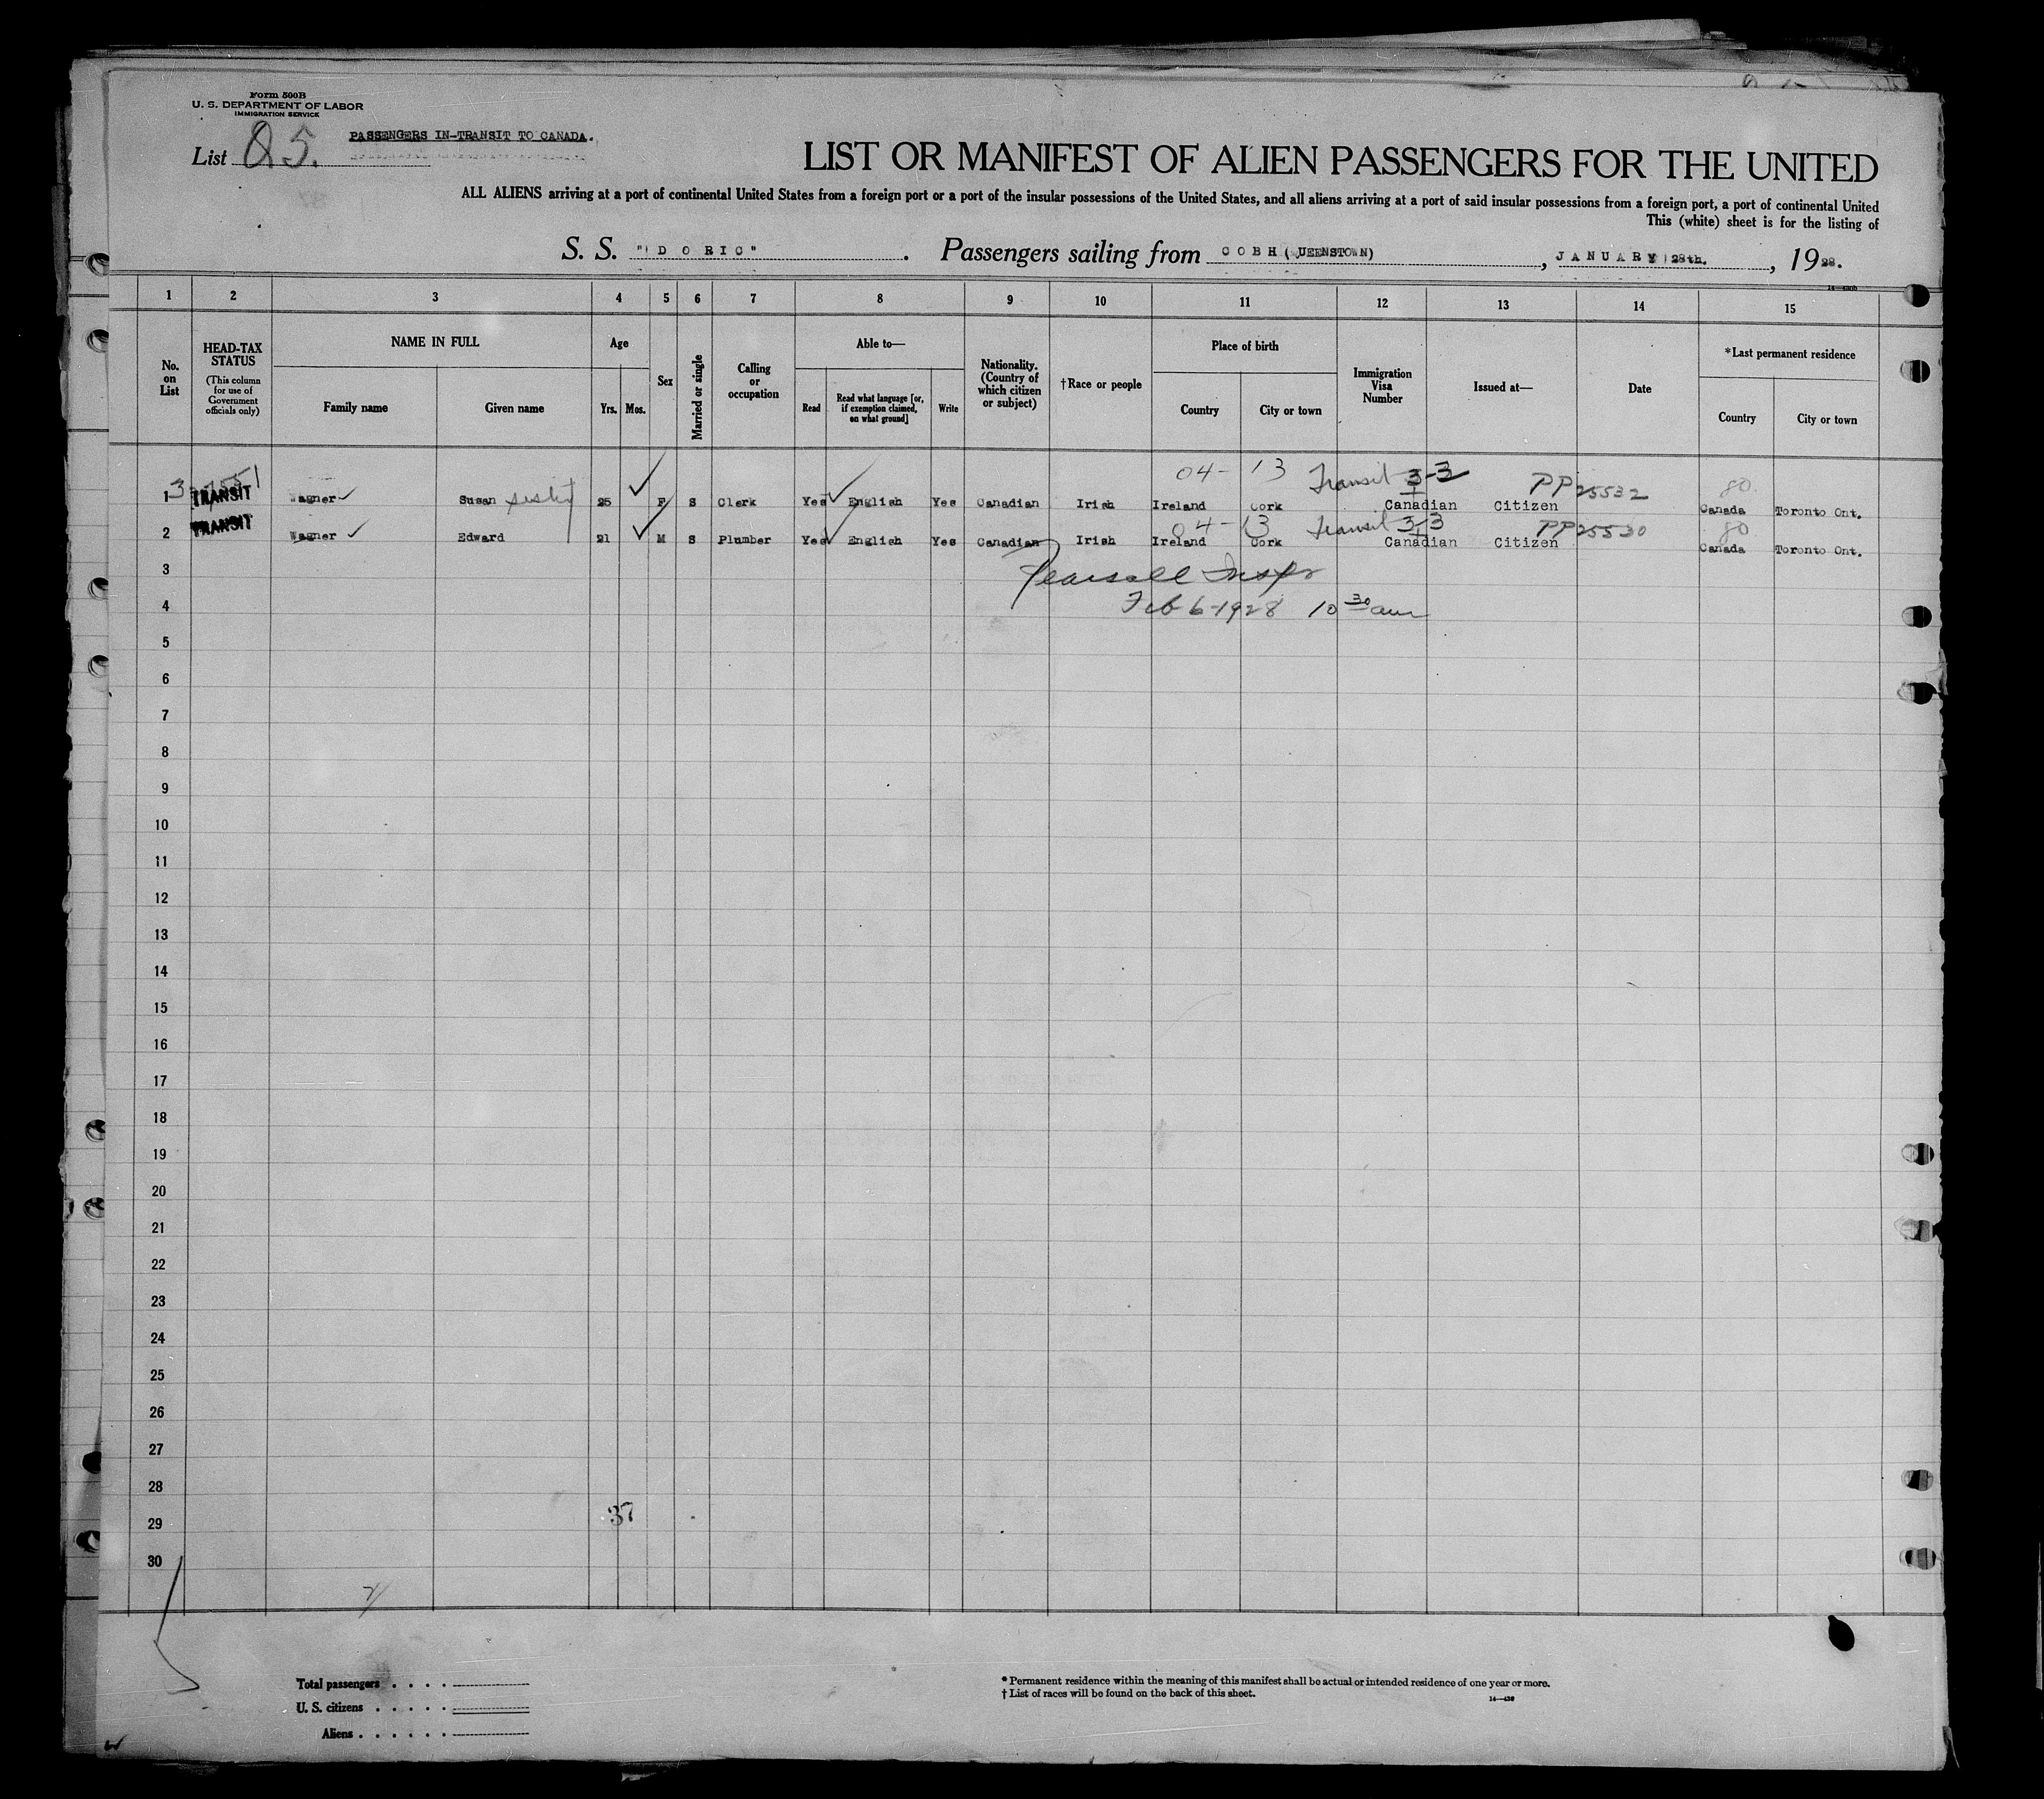 Form 500B
U. S. DEPARTMENT OF LABOR
IMMIGRATION SERVICE
PASSENGERS IN-TRANSIT TO CANADA.
List 85.
LIST OR MANIFEST OF ALIEN PASSENGERS FOR THE UNITED
ALL ALIENS arriving at a port of continental United States from a foreign port or a port of the insular possessions of the United States, and all aliens arriving at a port of said insular possessions from a foreign port, a port of continental United
This (white) sheet is for the listing of
S. S. "DORIC". Passengers sailing from COBH (UEENSTOWN), JANUARY 28th., 1928.
1 2 3 4 5 6 7 8 9 10 11 12 13 14 15
No. on List
HEAD-TAX STATUS
(This column for use of Government officials only)
NAME IN FULL
Family name
Given name
Age
Yrs.
Mos.
Sex
Married or single
Calling or occupation
Able to—
Read
Read what language [or, if exemption claimed, on what ground]
Write
Nationality. (Country of which citizen or subject)
†Race or people
Place of birth
Country
City or town
Immigration Visa Number
Issued at—
Date
*Last permanent residence
Country
City or town
04- 13 Transit 3-3 PP 25532 80
1 TRANSIT Wagner Susan 25 F S Clerk Yes English Yes Canadian Irish Ireland Cork Canadian Citizen Canada Toronto Ont.
04-13 Transit 3-3 PP 25530 80
2 TRANSIT Wagner Edward 21 M S Plumber Yes English Yes Canadian Irish Ireland Cork Canadian Citizen Canada Toronto Ont.
3 Pearsall Inspr
4 Feb 6-1928 10 30 am
5
6
7
8
9
10
11
12
13
14
15
16
17
18
19
20
21
22
23
24
25
26
27
28
37
29
30
Total passengers
U. S. citizens
Aliens
* Permanent residence within the meaning of this manifest shall be actual or intended residence of one year or more.
† List of races will be found on the back of this sheet.